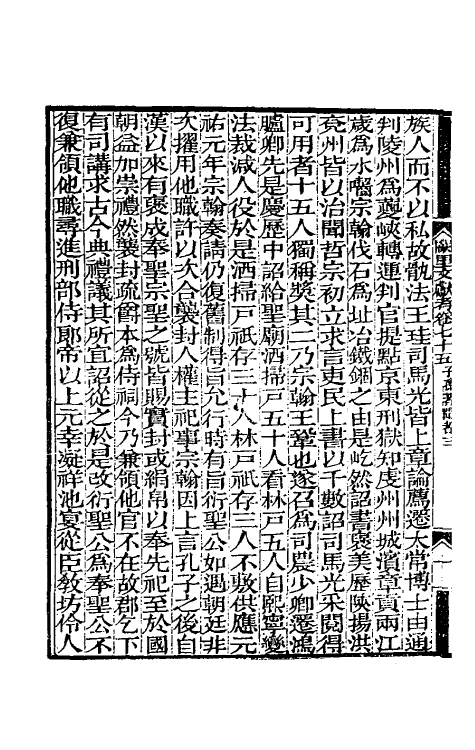 闕里文獻考卷七十五 子孫著聞者三
族人而不以私故骫法王珪司馬光皆上章論薦遷太常博士由通
判陵州為夔峽轉運判官提點京東刑獄知虔州州城濱章貢兩江
歲為水齧宗翰伐石為址冶鐵錮之由是屹然詔書褒美歷陝揚洪
兗州皆以治聞哲宗初立求言吏民上書以千數詔司馬光采閱得
可用者十五人獨稱獎其二乃宗翰王鞏也遂召為司農少卿遷鴻
臚卿先是慶歷中詔給聖廟洒掃戶五十人看林戶五人自熙寧變
法裁減人役於是洒掃戶祇存三十人林戶祇存三人不敷供應元
祐元年宗翰奏請仍復舊制得旨允行時有旨衍聖公如遇朝廷非
次擢用他職許以次合襲封人權主祀事宗翰因上言孔子之後自
漢以來有褒成奉聖宗聖之號皆賜實封或縑帛以奉先祀至於國
朝益加崇禮然襲封疏爵本為侍祠今乃兼領他官不在故郡乞下
有司講求古今典禮議其所宜詔從之於是改衍聖公為奉聖公不
復兼領他職尋進刑部侍郎帝以上元幸凝祥池宴從臣教坊伶人